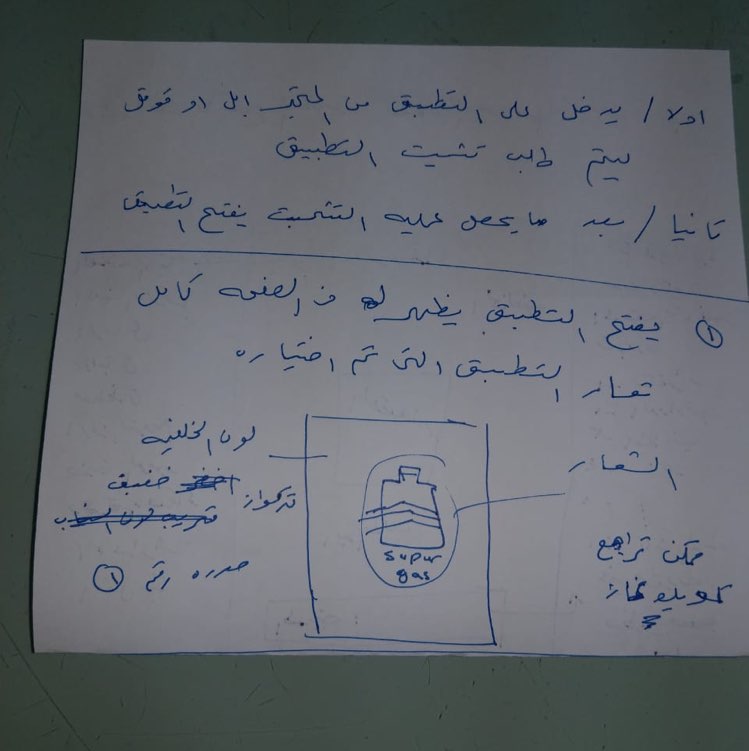 اولا / يدخل على التطبيق من المتجر ابل او قوقل
يتم طلب تثبيت التطبيق
ثانيا / بعد ما يحصل عليه التثبيت يفتح التطبيق
① يفتح التطبيق يظهر له في الصفحه كامل
شعار التطبيق التي تم اختياره
لون الخلفيه
تركواز خفيف
صوره رقم ①
الشعار
supur
gas
ممكن تراجع
غاز